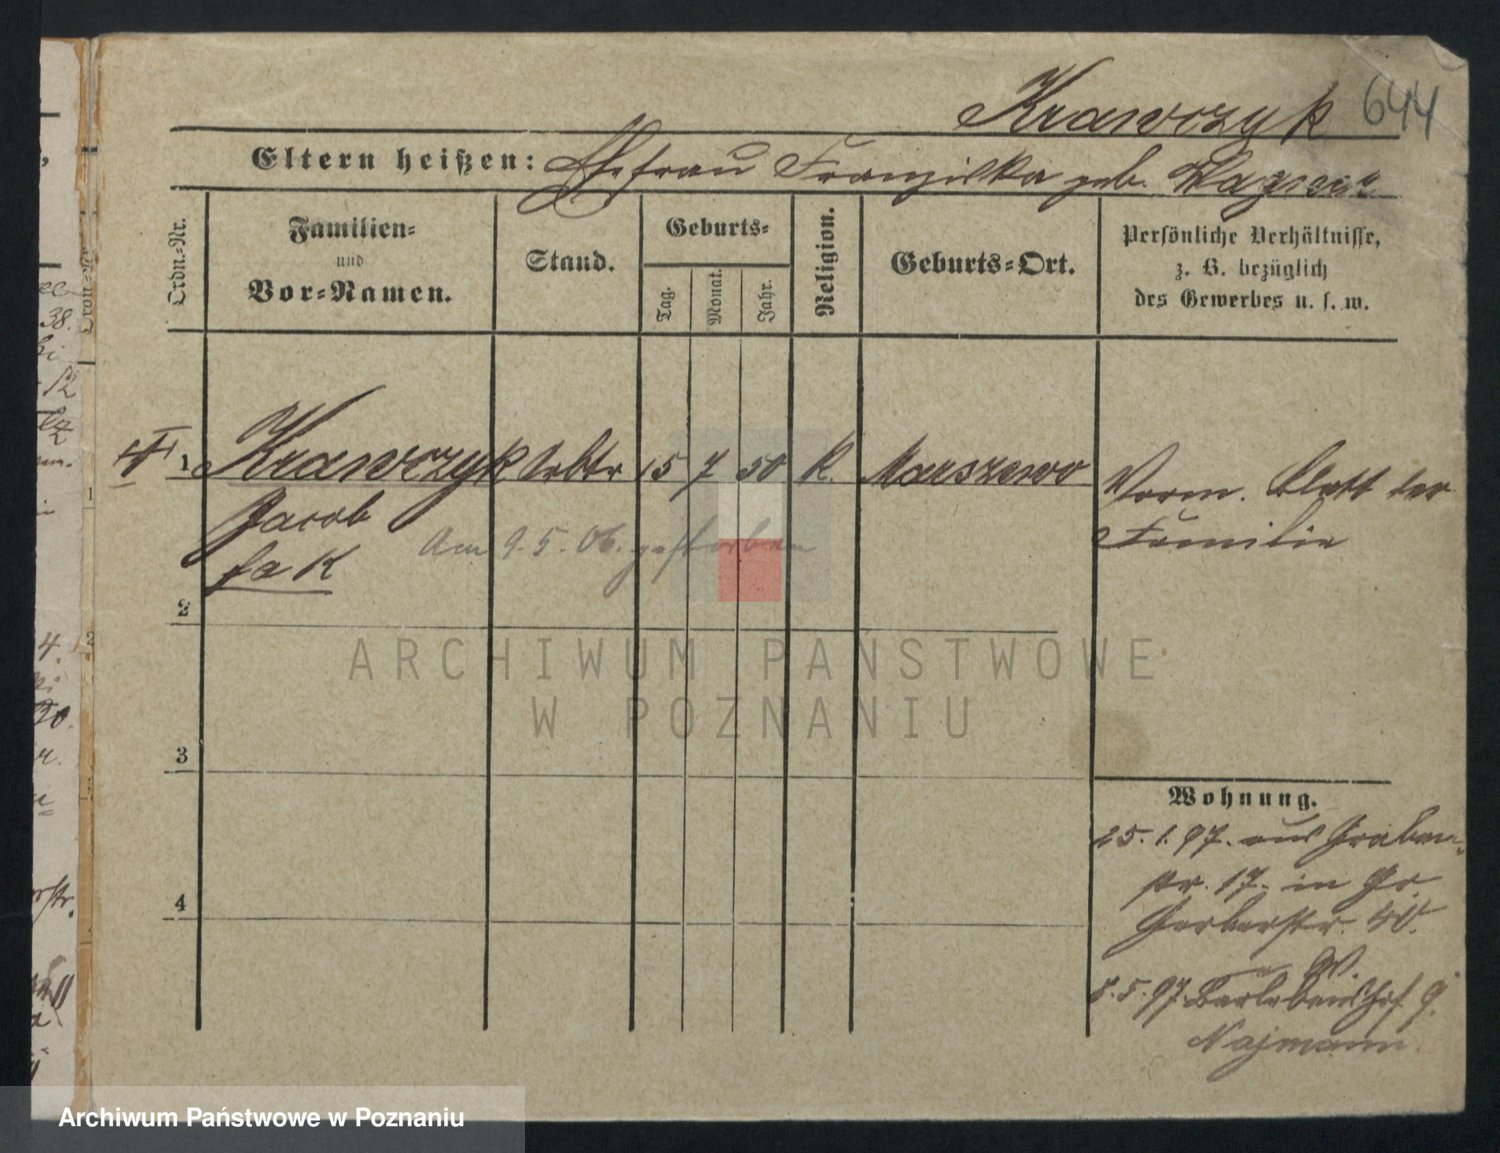 Krawczyk 644
Eltern heißen: Ehefrau Franziska geb. Wagner
Ordn.-Nr.
Familien-
und
Vor-Namen.
Stand.
Geburts-
Tag.
Monat.
Jahr.
Religion.
Geburts-Ort.
Persönliche Verhältnisse,
z. B. bezüglich
des Gewerbes u. s. w.
1 Krawczyk Arbtr 15 7 50 K. Marszewo
Jacob
Vorm. Blatt der
Familie
Am 9.5.06. gestorben
2
ARCHIWUM PAŃSTWOWE
W POZNANIU
3
Wohnung.
25.1.97. aus Graben-
str. 17. in Gr.
Gerberstr. 40.
8.5.97. Berlebenshof 9.
Najmann
4
Archiwum Państwowe w Poznaniu